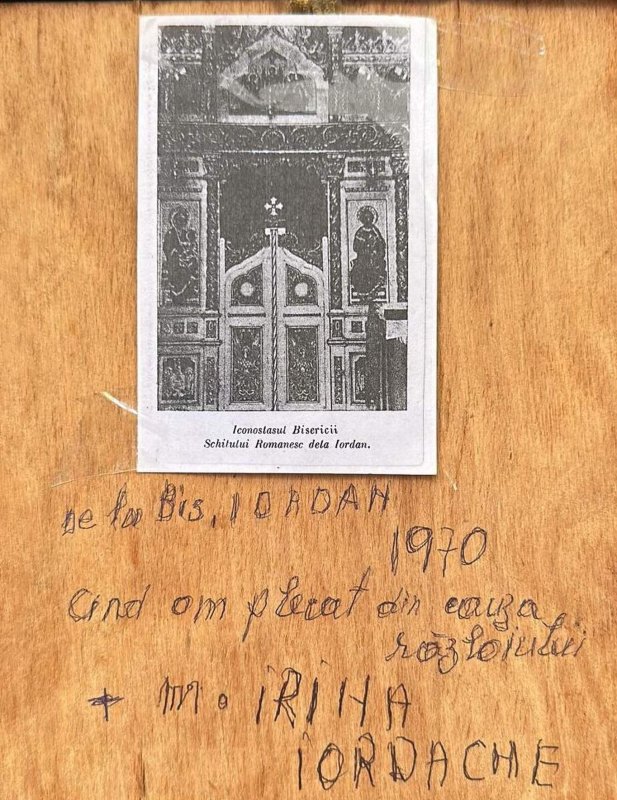 Iconostasul Bisericii
Schitului Romanesc dela Iordan.
De la Bis, IORDAN
1970
Cind am plecat din cauza
războiului
+ M. IRINA
IORDACHE